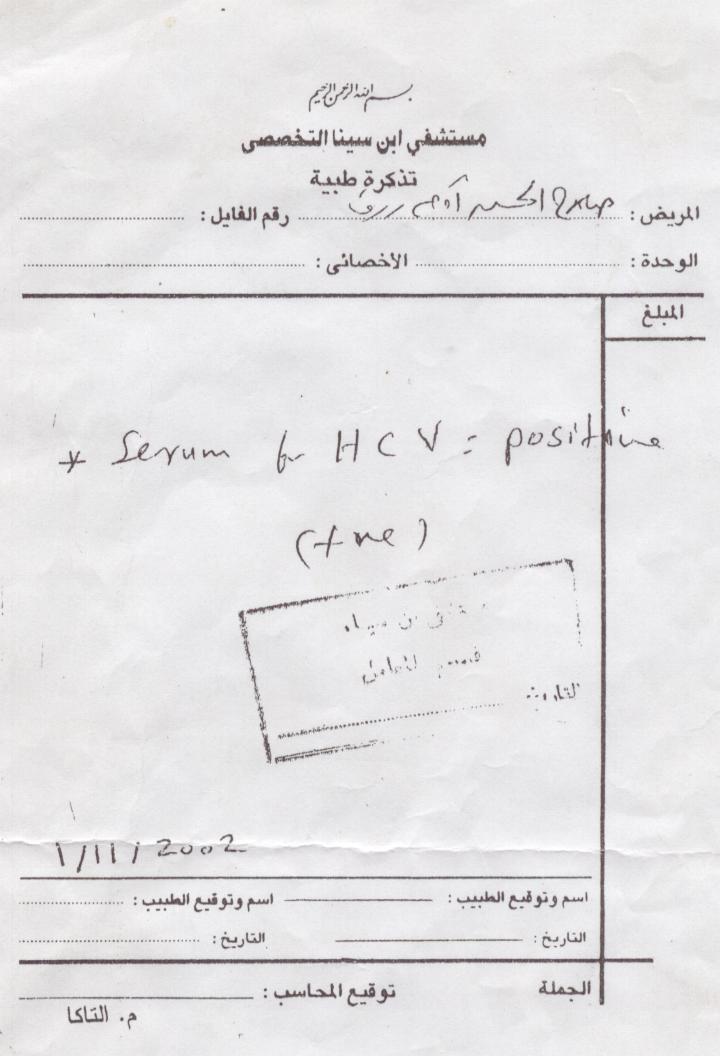 بسم الله الرحمن الرحيم
مستشفي ابن سينا التخصصى
تذكرة طبية
المريض : صلاح الحسن آدم رزق رقم الفايل :
الوحدة : الأخصائى :
المبلغ
* Serum for HCV : positive
(+ve)
مستشفى ابن سينا
قسم المعامل
التاريخ
1/11/2002
اسم وتوقيع الطبيب : اسم وتوقيع الطبيب :
التاريخ : التاريخ :
الجملة توقيع المحاسب :
م. التاكا